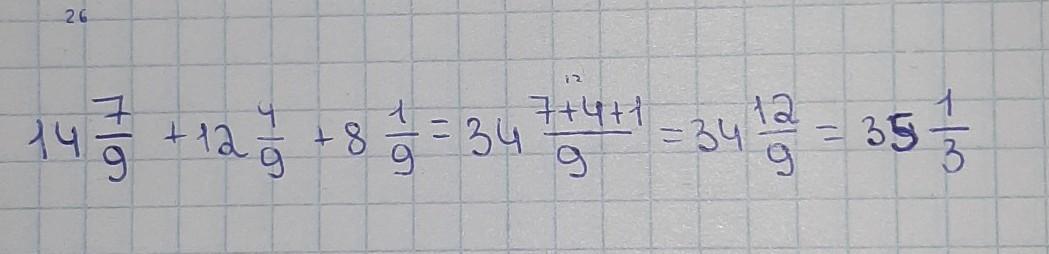 26
12
14 7/9 + 12 4/9 + 8 1/9 = 34 7+4+1/9 = 34 12/9 = 35 1/3